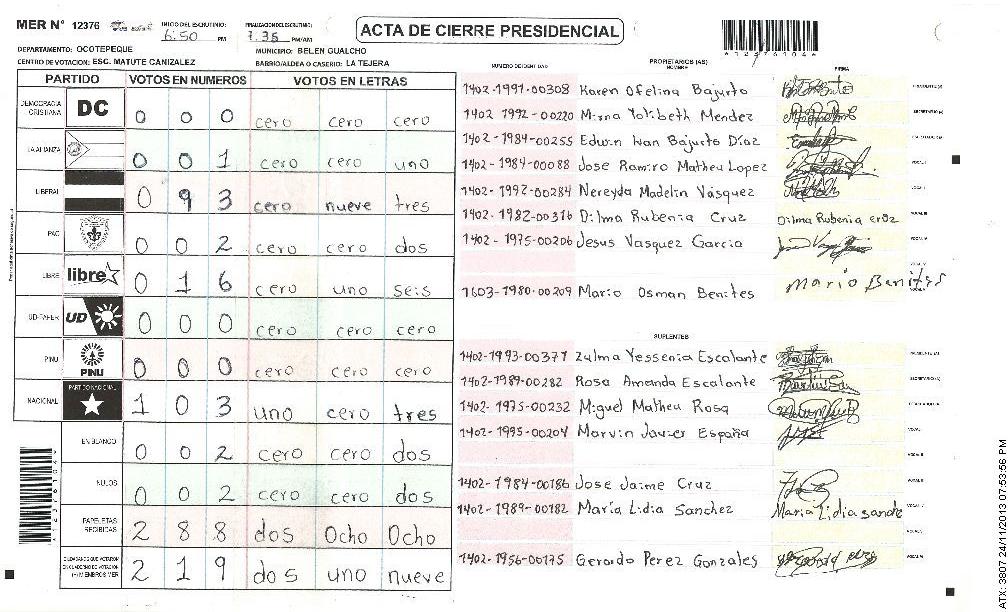 MER N° 12376
INICIO DEL ESCRUTINIO: 6:50 PM
FINALIZACION DEL ESCRUTINIO: 7:35 PM/AM
ACTA DE CIERRE PRESIDENCIAL
DEPARTAMENTO: OCOTEPEQUE
MUNICIPIO: BELEN GUALCHO
CENTRO DE VOTACION: ESC. MATUTE CANIZALEZ
BARRIO/ALDEA O CASERIO: LA TEJERA
PARTIDO VOTOS EN NUMEROS VOTOS EN LETRAS
DEMOCRACIA CRISTIANA DC 0 0 0 cero cero cero
LA ALIANZA 0 0 1 cero cero uno
LIBERAL 0 9 3 cero nueve tres
PAC 0 0 2 cero cero dos
LIBRE libre 0 1 6 cero uno seis
UD-FAPER UD 0 0 0 cero cero cero
PINU PINU 0 0 0 cero cero cero
NACIONAL PARTIDO NACIONAL 1 0 3 uno cero tres
EN BLANCO 0 0 2 cero cero dos
NULOS 0 0 2 cero cero dos
PAPELETAS RECIBIDAS 2 8 8 dos Ocho Ocho
CIUDADANOS QUE VOTARON EN CUADERNO DE VOTACION (+) MIEMBROS MER 2 1 9 dos uno nueve
NUMERO DE IDENTIDAD PROPIETARIOS (AS) NOMBRE FIRMA
1402-1991-00308 Karen Ofelina Bajurto
1402 1992-00220 Mirna Yolibeth Mendez
1402-1984-00255 Edwin Ivan Bajurto Díaz
1402-1984-00088 Jose Ramiro Matheu Lopez
1402-1992-00284 Nereyda Madelin Vásquez
1402-1982-00316 Dilma Rubenia Cruz Dilma Rubenia cruz
1402-1975-00206 Jesus Vasquez Garcia
1603-1980-00209 Mario Osman Benites Mario Benites
SUPLENTES
1402-1993-00377 Zulma Yessenia Escalante
1402-1989-00282 Rosa Amanda Escalante
1402-1975-00232 Miguel Matheu Rosa
1402-1995-00204 Marvin Javier España
1402-1984-00186 Jose Jaime Cruz
1402-1989-00182 María Lidia Sanchez Maria Lidia sanche
1402-1956-00175 Gerardo Perez Gonzales
ATX: 3807 24/11/2013 07:53:56 PM